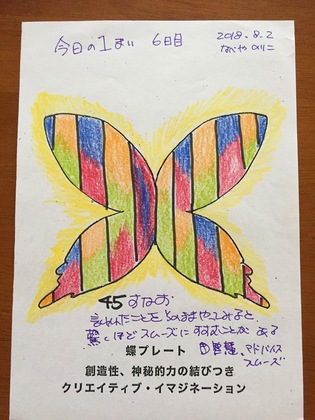 今日の1まい 6日目
2018.8.2
45 すなお
言われたことを そのままやってみると、
驚くほどスムーズにすすむことが ある
知慧、アドバイス
スムーズ
蝶プレート
創造性、神秘的力の結びつき
クリエイティブ・イマジネーション